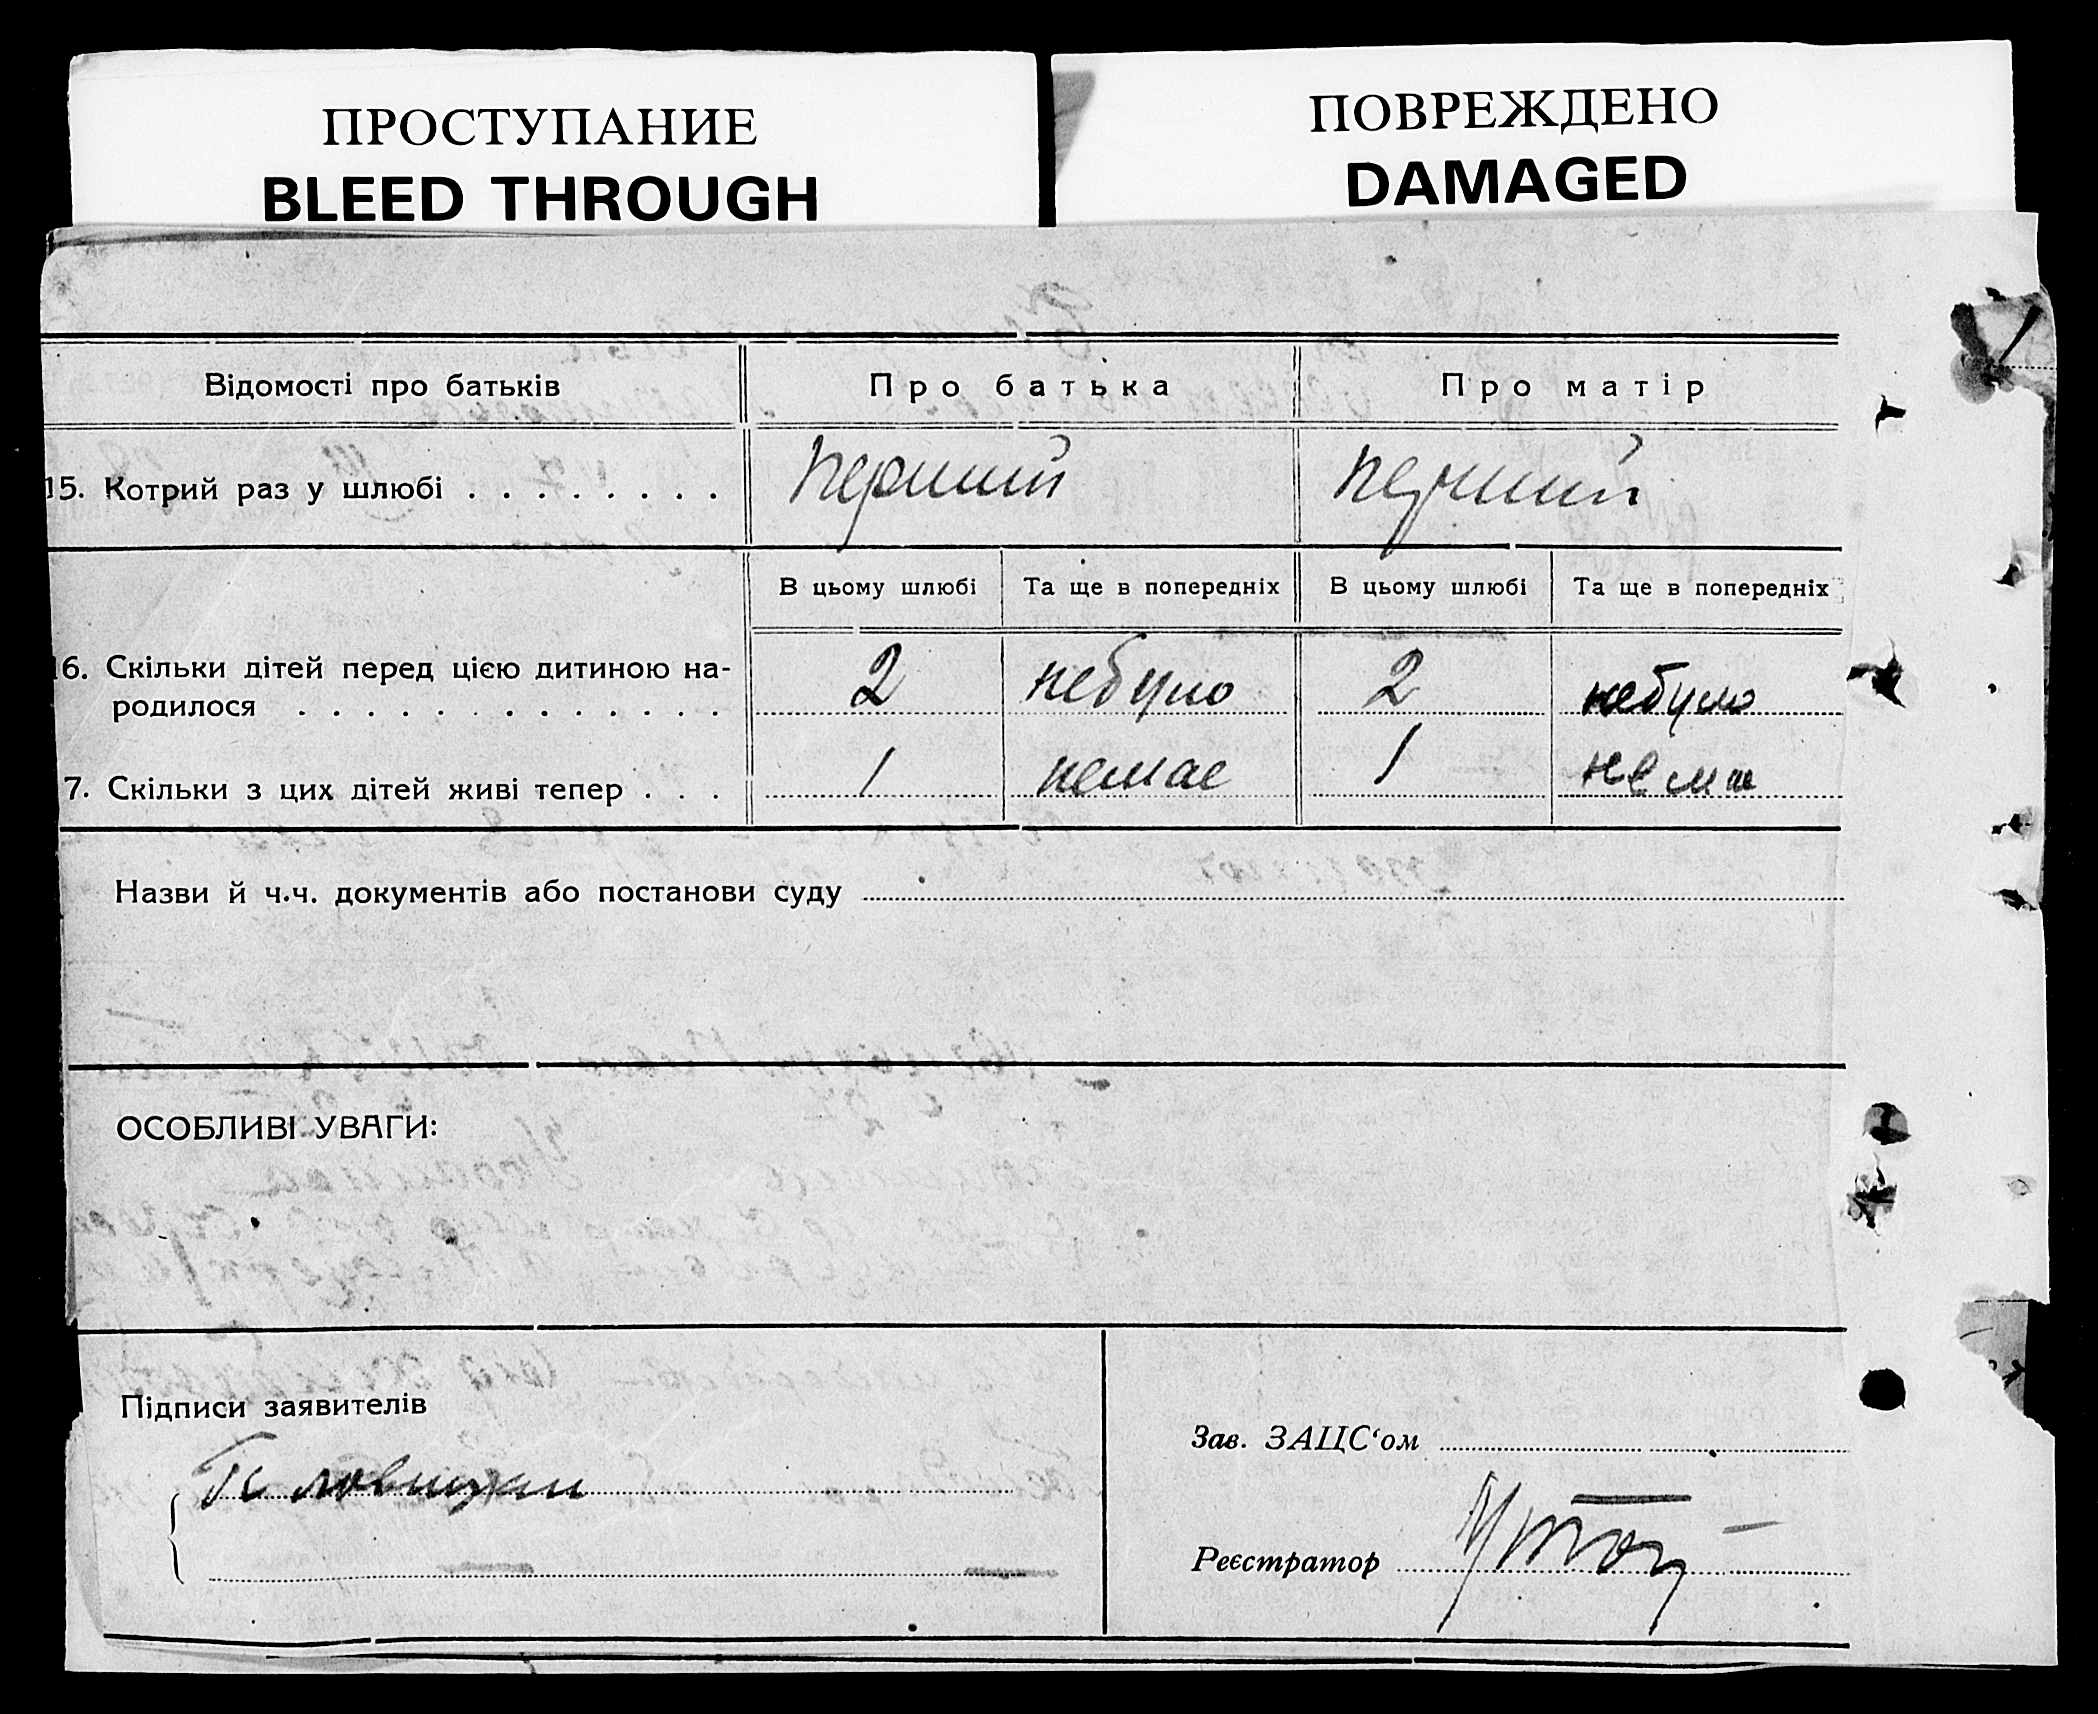 ПРОСТУПАНИЕ
BLEED THROUGH
ПОВРЕЖДЕНО
DAMAGED
Відомості про батьків Про батька Про матір
15. Котрий раз у шлюбі . . . . . . . . перший перший
В цьому шлюбі Та ще в попередніх В цьому шлюбі Та ще в попередніх
6. Скільки дітей перед цією дитиною на-
родилося . . . . . . . . . . . . . 2 небуло 2 небуло
7. Скільки з цих дітей живі тепер . . . 1 немає 1 нема
Назви й ч.ч. документів або постанови суду
ОСОБЛИВІ УВАГИ:
Підписи заявителів
Зав. ЗАЦС‘ом
Реєстратор